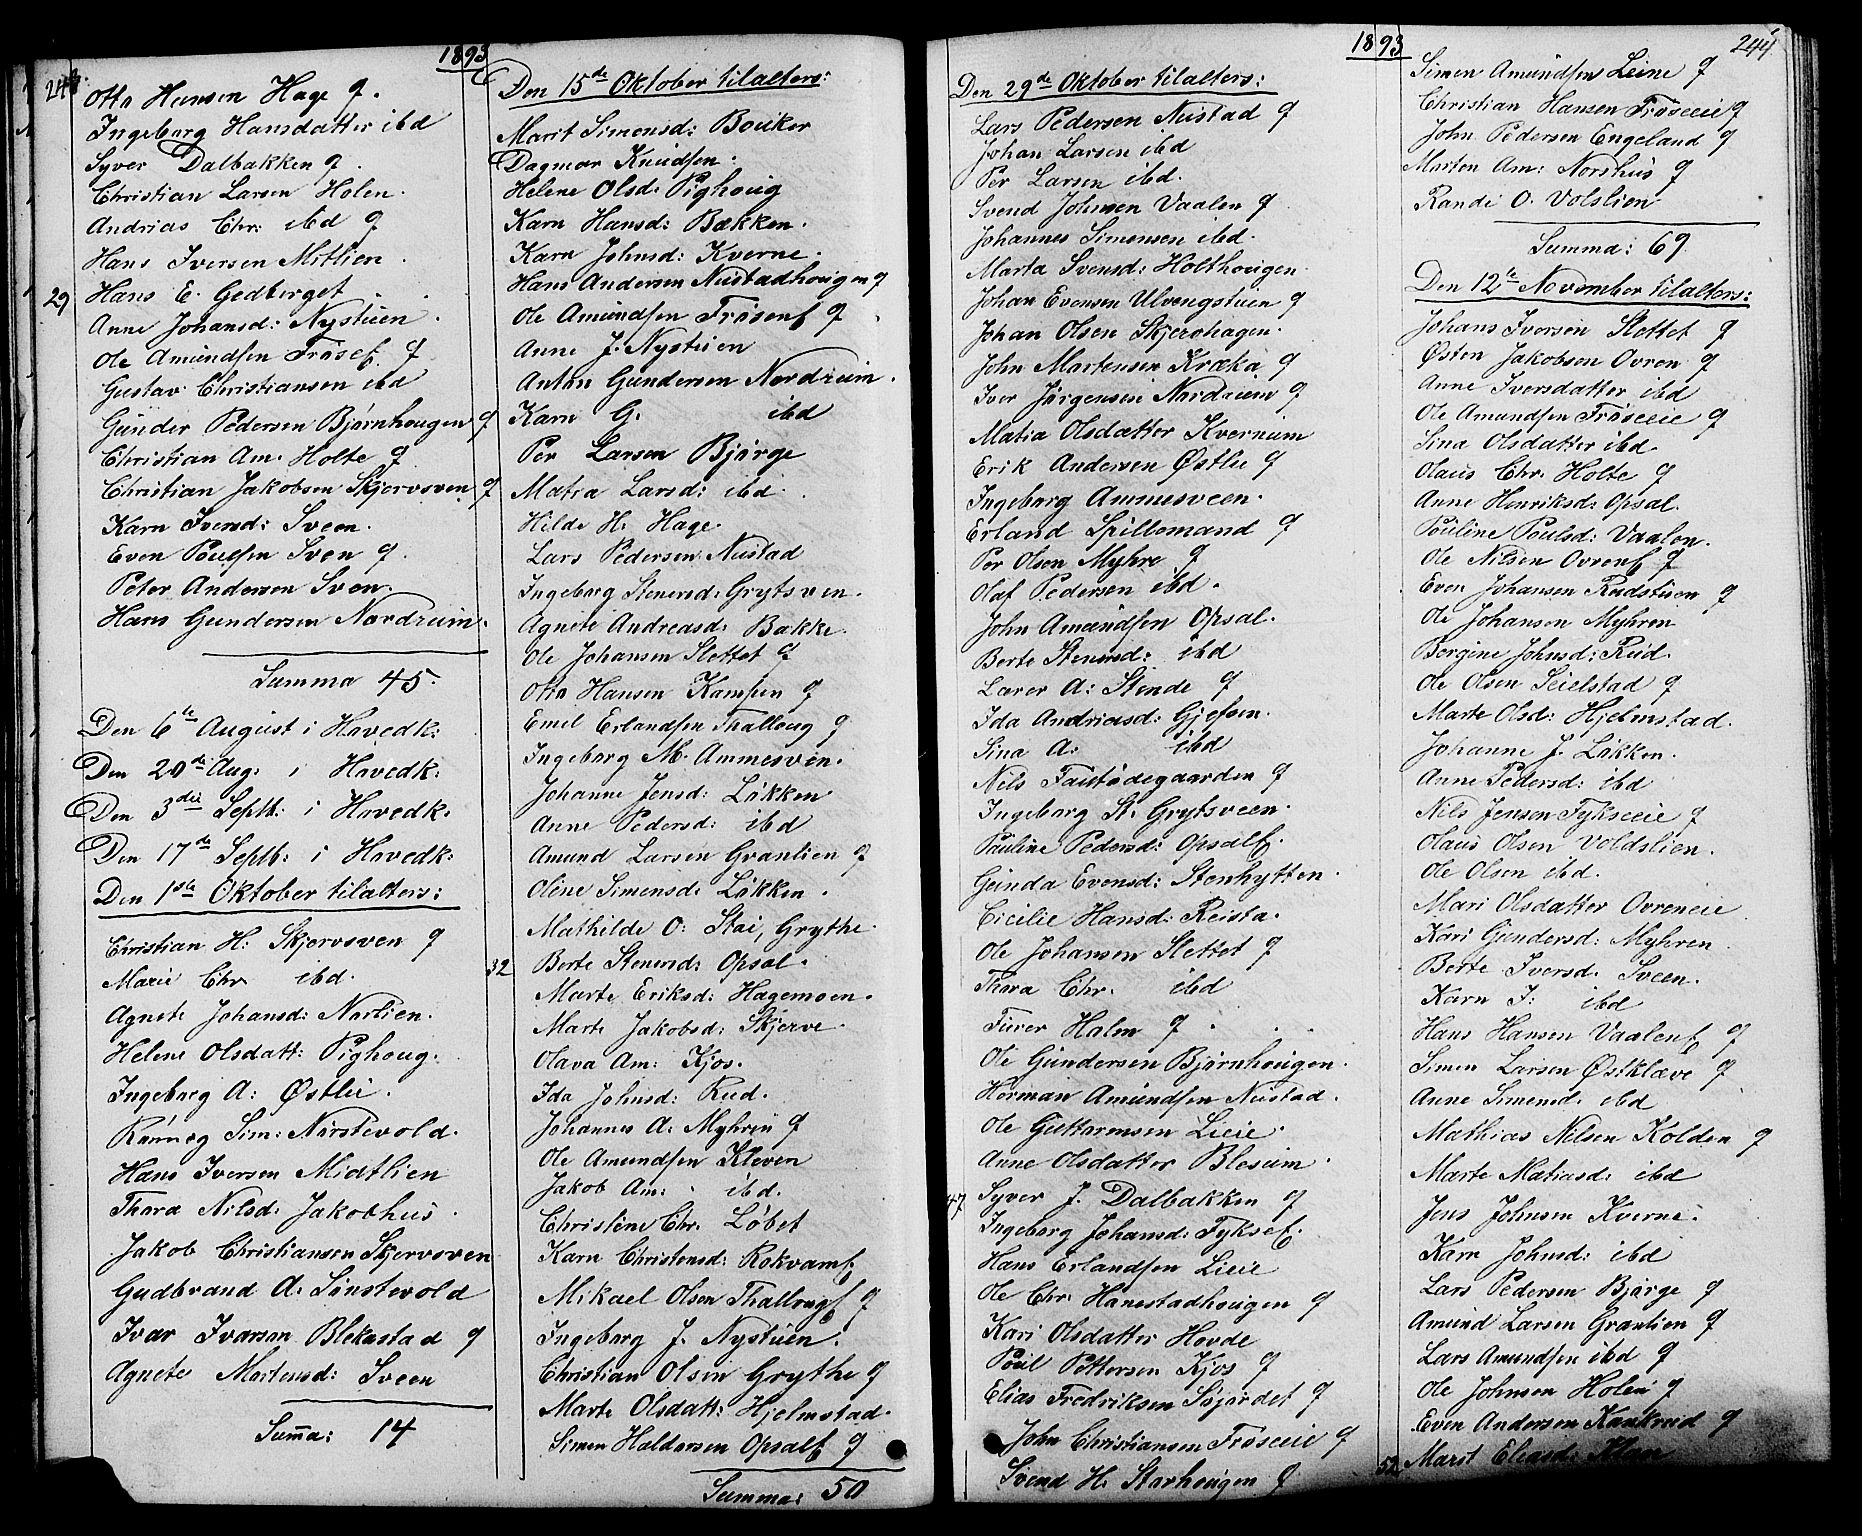 243.
1893
Otto Hansen Hage q.
Ingeborg Hansdatter ibd
Syver Dalbakken q.
Christian Larsen Holen.
Andrias Chr: ibd q
Hans Iversen Mitlien.
29 Hans E. Gedberget.
Anne Johansd: Nystuen.
Ole Amundsen Fröse q
Gustav Christiansen ibd
Gunder Pedersen Bjørnhougen q
Christian Am. Holte q
Christian Jakobsen Skjervsven q
Karn Iversd: Sveen.
Even Poulsen Sven q.
Peter Andersen Sven.
Hans Gundersen Nordrum.
Summa 45.
Den 6te August i Hovedk:
Den 20de Aug: i Hovedk:
Den 3die Septb: i Hovedk.
Den 17de Septb: i Hovedk:
Den 1ste Oktober tilalters:
Christian H: Skjervsven q
Marie Chr ibd.
Agnete Johansd: Nortien.
Helene Olsdatt: Pighoug.
Ingeborg A: Østlie.
Rønnog Sim: Nørstevold.
Hans Iversen Midtlien
Thora Nilsd: Jakobhus.
Jakob Christiansen Skjervsven
Gudbrand A. Sønstevold
Ivar Ivarsen Blekastad q
Agnete Martensd: Sveen
Summa: 14
Den 15de Oktober tilalters:
Marit Simensd: Bouker
Dagmar Knudsen.
Helene Olsd. Pighoug
Karn Hansd: Bækken.
Karn Johnsd: Kverne.
Hans Andersen Nustadhougen q
Ole Amundsen Frösenf q
Anne J. Nystuen
Anton Gundersen Nordrum.
Karn G. ibd
Per Larsen Bjørge
Matia Larsd: ibd.
Hilde H. Hage.
Lars Pedersen Nustad
Ingeborg Stenersd: Grytsven.
Agnete Andreasd: Bakke.
Ole Johansen Slettet q
Otto Hansen Kampen q
Emil Erlandsen Thalloug q
Ingeborg M. Ammesven.
Johanne Jensd: Løkken
Anne Pedersd: ibd
Amund Larsen Grantien q
Oline Simensd. Løkken.
Mathilde O: Stai, Grythe.
32 Berte Stenersd: Opsal.
Marte Eriksd: Hagemoen.
Marte Jakobsd: Skjerve.
Olava Am: Kjos.
Ida Johnsd: Rud.
Johannes A. Myhren q
Ole Amundsen Kleven
Jakob Am: ibd.
Christine Chr. Løbet
Karn Christensd: Rokvamf
Mikael Olsen Thallougf q
Ingeborg J. Nystuen.
Christian Olsen Grythe q
Marte Olsdatt: Hjelmstad.
Simen Haldorsen Opsalf q
Summa: 50
1893
244.
Den 29de Oktober tilalters:
Lars Pedersen Nustad q
Johan Larsen ibd
Per Larsen ibd.
Svend Johnsen Vaalen q
Johannes Simensen ibd.
Marta Svensd: Holthougen.
Johan Evensen Ulvengstuen q
Johan Olsen Skjerohagen.
John Martensen Kræka q
Iver Jørgensen Nordrum q
Matia Olsdatter Kvernum
Erik Andersen Østlie q
Ingeborg Ammesveen.
Erland Spillemand q
Per Olsen Myhre q
Olaf Pedersen ibd.
John Amundsen Opsal.
Berte Stenersd: ibd
Lærer A: Stende q
Ida Andriasd: Gjefsen.
Sina A: ibd
Nils Fautødegaarden q
Ingeborg St. Grytsveen.
Pauline Pedersd: Opsalf.
Gunda Evensd: Stenhytten.
Cicilie Hansd: Reista.
Ole Johansen Slettet q
Thora Chr. ibd
Furer Halm q.
Ole Gundersen Bjørnhougen.
Herman Amundsen Nustad.
Ole Guttormsen Lieie.
Anne Olsdatter Blesum.
47 Syver J. Dalbakken q
Ingeborg Johansd: Fyksef.
Hans Erlandsen Lieie
Ole Chr. Hanestadhougen q
Kari Olsdatter Hovde
Poul Pettersen Kjos q
Elias Fredriksen Søjordet q
John Christiansen Fröseeie q
Svend H. Storhougen q
Simen Amundsen Leine q
Christian Hansen Fröseeie q
John Pedersen Engeland q
Marten Am: Norshus q
Randi O. Volslien
Summa: 69.
Den 12te November tilalters:
Johans Iversen Slettet q
Østen Jakobsen Ovren q
Anne Iversdatter ibd
Ole Amundsen Fröseeie q
Sina Olsdatter ibd.
Olaus Chr. Holte q
Anne Henriksd: Opsal.
Pouline Poulsd: Vaalen.
Ole Nilsen Ovrenf q
Even Johansen Rudstuen q
Ole Johansen Myhren
Bergine Johnsd: Rud.
Ole Olsen Seielstad q
Marte Olsd: Hjelmstad.
Johanne J. Løkken.
Anne Pedersd: ibd
Nils Jensen Fykseeie q
Olaus Olsen Voldslien.
Ole Olsen ibd.
Mari Olsdatter Ovreneie
Kari Gundersd: Myhren.
Berte Iversd. Sveen.
Karn I: ibd
Hans Hansen Vaalenf q
Simen Larsen Østklæve q
Anne Simensd. ibd
Mathias Nilsen Kolden q
Marte Matiasd: ibd
Jens Johnsen Kverne.
Karn Johnsd: ibd
Lars Pedersen Bjørge q
Amund Larsen Grantien q
Lars Amundsen ibd q
Ole Johnsen Holen q
Even Andersen Kankrud q
52 Marit Eliasd: